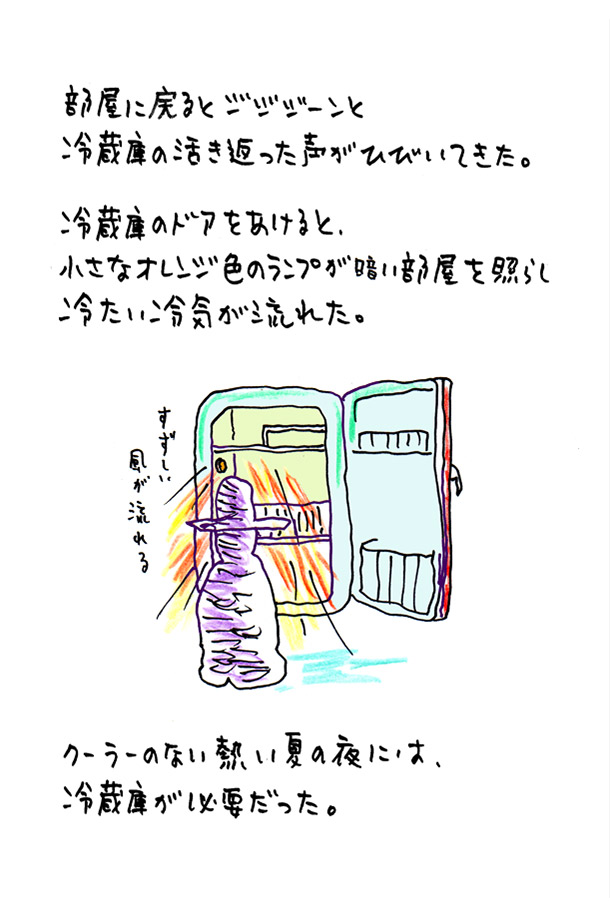 部屋に戻るとジジジーンと
冷蔵庫の活き返った声がひびいてきた。
冷蔵庫のドアをあけると、
小さなオレンジ色のランプが暗い部屋を照らし
冷たい冷気が流れた。
すずしい
風が流れる
クーラーのない熱い夏の夜には、
冷蔵庫が必要だった。